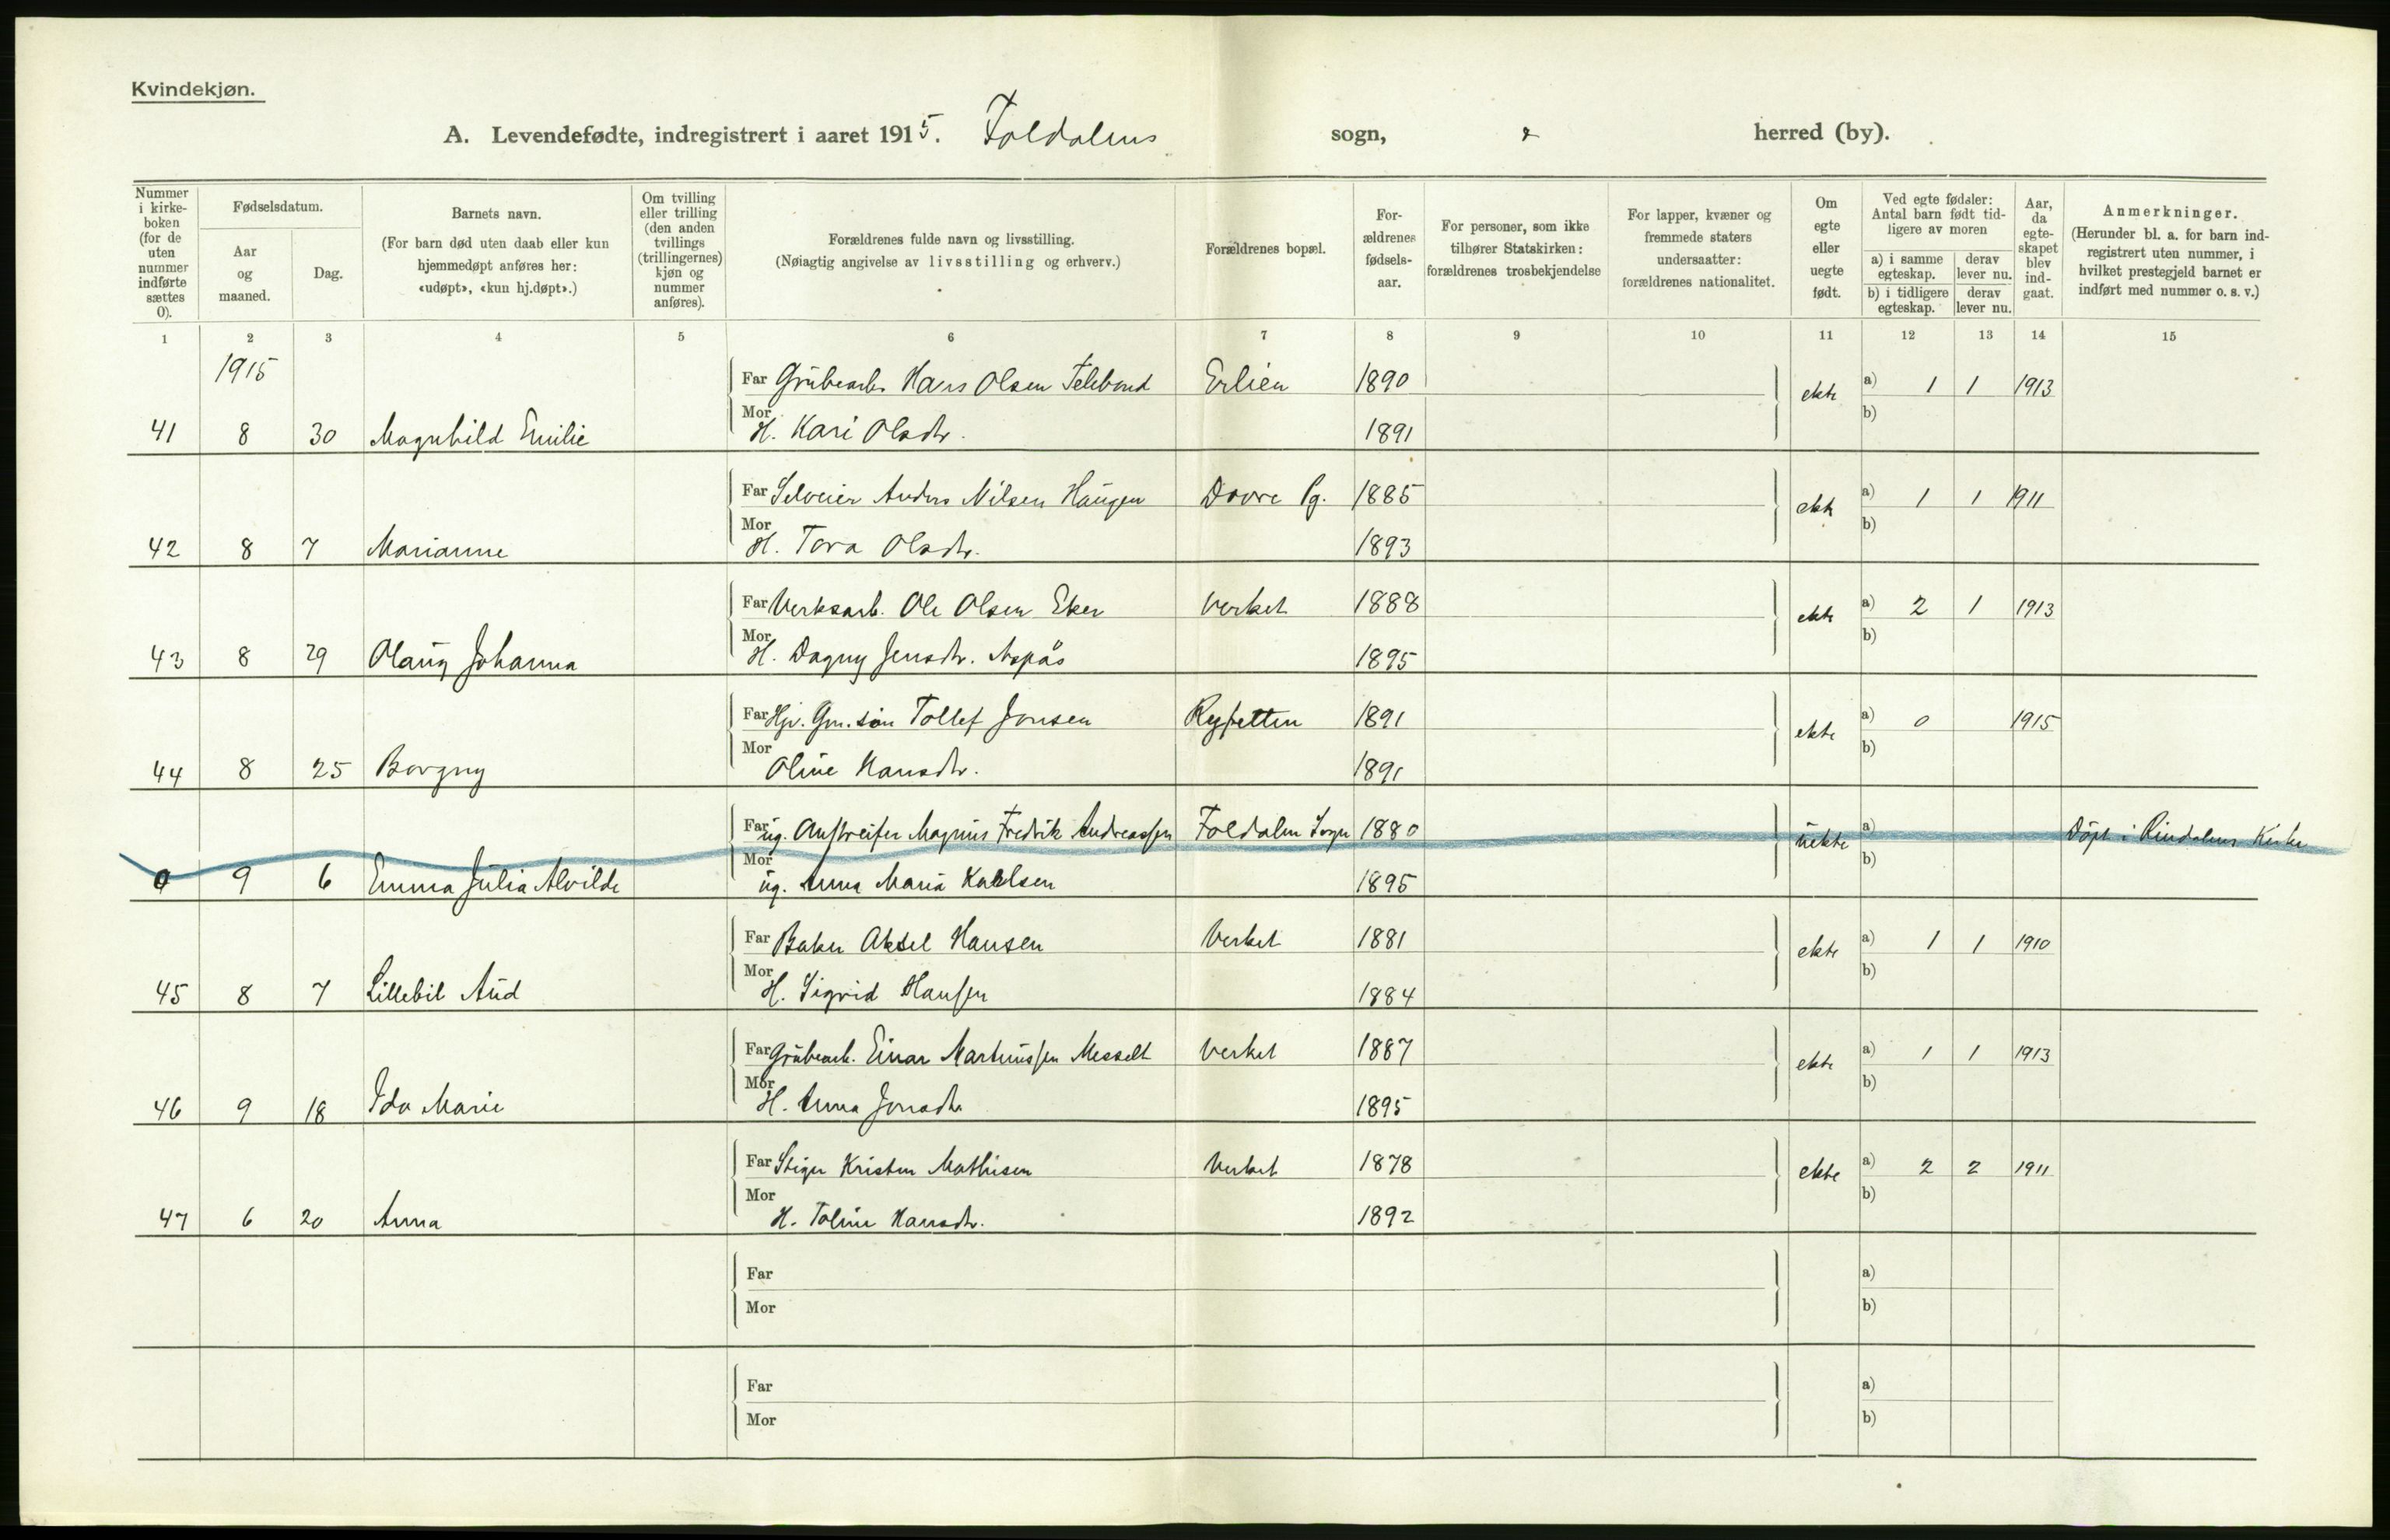 Kvindekjøn.
A. Levendefødte, indregistrert i aaret 1915. Foldalens sogn, herred (by).
Nummer i kirke-boken (for de uten nummer indførte sættes 0).
Fødselsdatum.
Aar og maaned.
Dag.
Barnets navn.
(For barn død uten daab eller kun hjemmedøpt anføres her: «udøpt», «kun hj.døpt».)
Om tvilling eller trilling (den anden tvillings (trillingernes) kjøn og nummer anføres).
Forældrenes fulde navn og livsstilling.
(Nøiagtig angivelse av livsstilling og erhverv.)
Forældrenes bopæl.
For-ældrenes fødsels-aar.
For personer, som ikke tilhører Statskirken: forældrenes trosbekjendelse
For lapper, kvæner og fremmede staters undersaatter: forældrenes nationalitet.
Om egte eller uegte født.
Ved egte fødsler: Antal barn født tid-ligere av moren
a) i samme egteskap. derav lever nu.
b) i tidligere egteskap. derav lever nu.
Aar, da egte-skapet blev ind-gaat.
Anmerkninger.
(Herunder bl. a. for barn ind-registrert uten nummer, i hvilket prestegjeld barnet er indført med nummer o. s. v.)
1 2 3 4 5 6 7 8 9 10 11 12 13 14 15
1915
Far Grubearb. Hans Olsen Erlien 1890 ekte a) 1 1 1913
41 8 30 Magnhild Emilie Mor H. Kari Olsdtr. 1891 b)
Far Selveier Anders Nilsen Haugen Dovre Pg. 1885 ekte a) 1 1 1911
42 8 7 Marianne Mor H. Tora Olsdtr. 1893 b)
Far Verksarb. Ole Olsen Eker Verket 1888 ekte a) 2 1 1913
43 8 29 Olaug Johanna Mor H. Dagny Jensdtr. Aspås 1895 b)
Far Gm. søn Tollef Jonsen 1891 ekte a) 0 1915
44 8 25 Borgny Mor Oline Hansdtr. 1891 b)
Far ug. Magnus Fredrik Andreassen Foldalen Sogn 1880 uekte a) Döpt i Rindalens Kirke
0 9 6 Emma Julia Alvilde Mor ug. Anna Maria Karlsen 1895 b)
Far Baker Aksel Hansen Verket 1881 ekte a) 1 1 1910
45 8 7 Lillebil Aud Mor H. Sigrid Hansen 1884 b)
Far Grubearb. Einar Martinussen Messelt Verket 1887 ekte a) 1 1 1913
46 9 18 Ida Marie Mor H. Anna Jonsdtr. 1895 b)
Far Stiger Kristen Mathisen Verket 1878 ekte a) 2 2 1911
47 6 20 Anna Mor H. Toline Hansdtr. 1892 b)
Far a)
Mor b)
Far a)
Mor b)